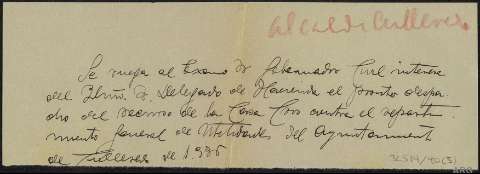 Alcalde Cullera
Se ruega al Exmo Sr Gobernador Civil interese
del Iltmo. Sr. Delegado de Hacienda el pronto despa
cho del recurso de la Casa contra el reparti
miento general de Utilidades del Ayuntamiento
de Cullera de 1936